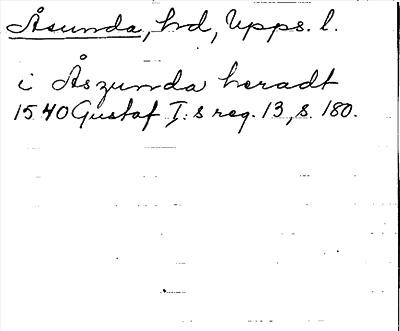 Åsunda, hd, Upps. l.
i Åszunda heradt
1540 Gustaf I:s reg. 13, s. 180.